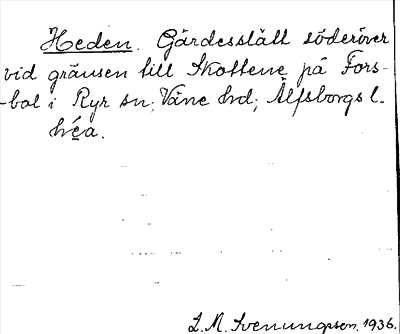 Heden. Gärdesslätt söderöver
vid gränsen till Skottene på Fors-
-bol i Ryr sn; Väne hd; Älfsborgs l.
héa.
L. M. Svenungsson. 1936.